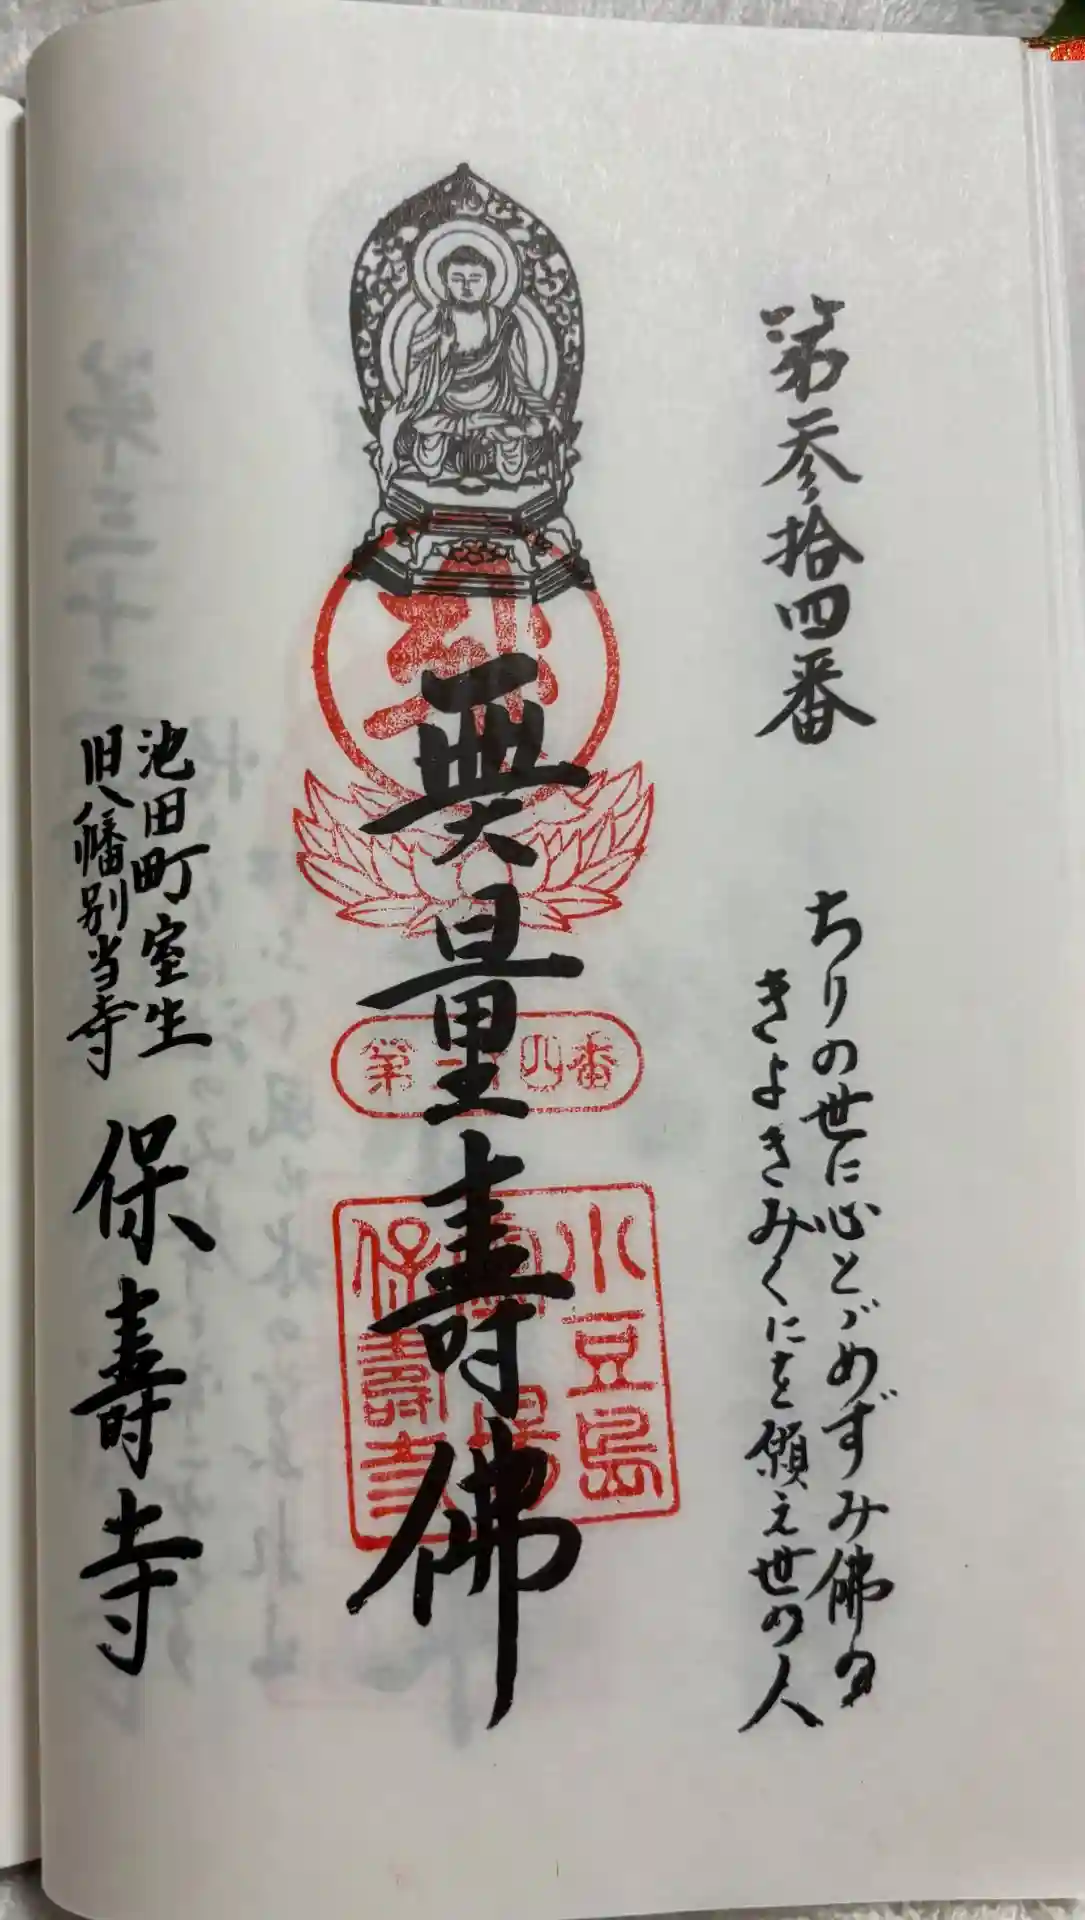 第参拾四番
ちりの世に心とゞめずみ佛の
きよきみくにを願え世の人
無量壽佛
第三十四番
小豆島
霊場
保壽寺
池田町室生
旧八幡別当寺
保壽寺